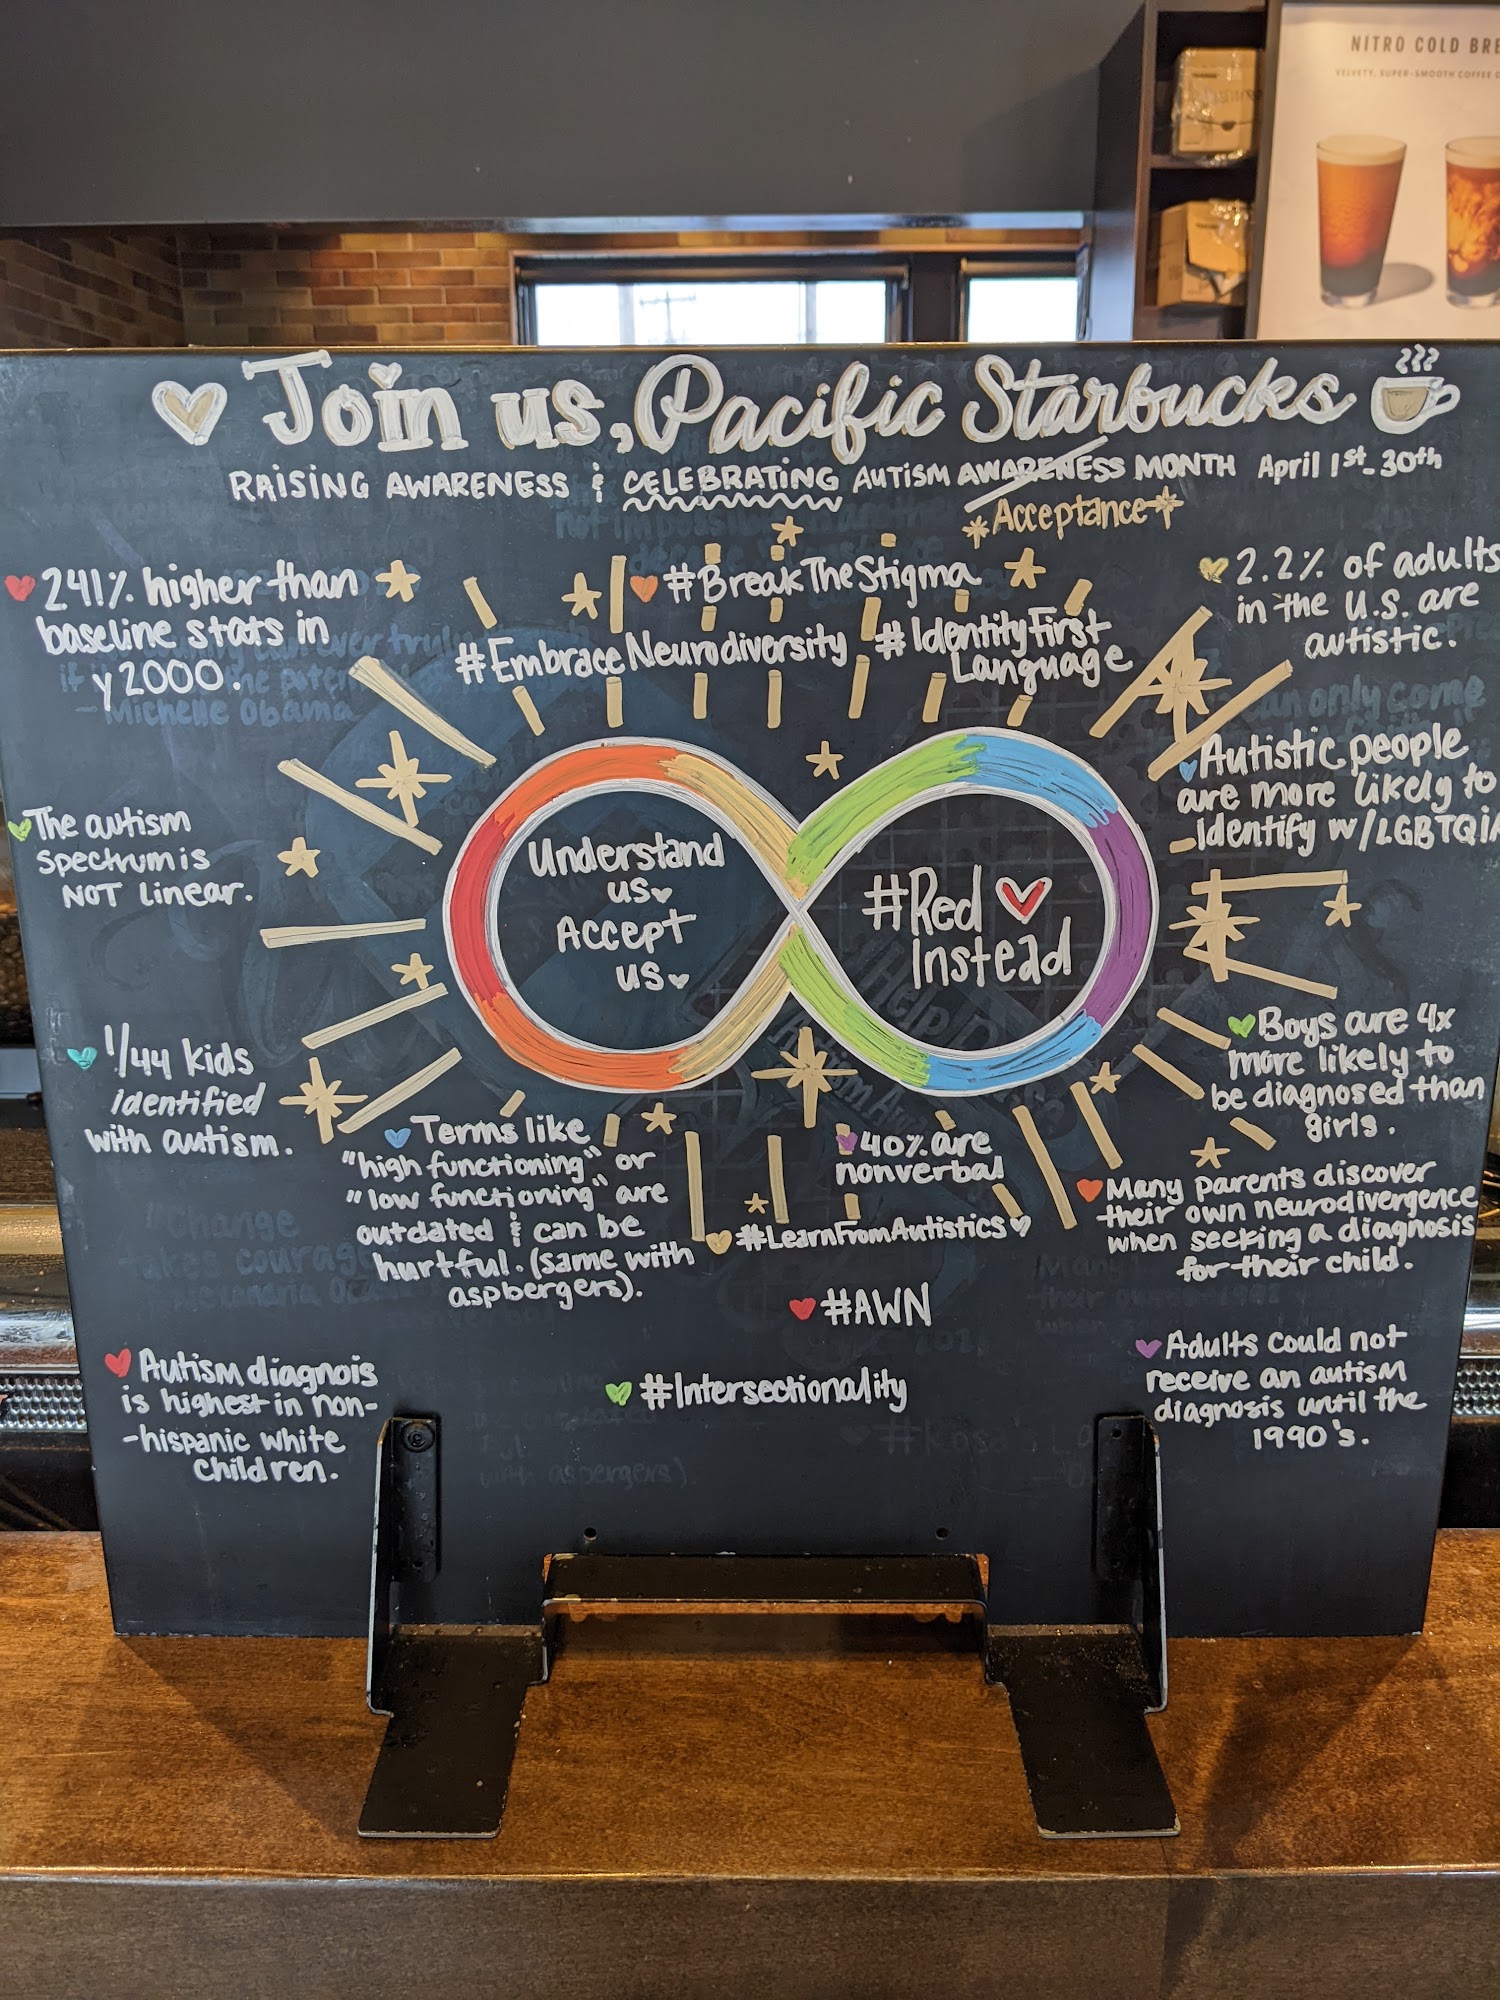 NITRO COLD BRE
VELVETY, SUPER-SMOOTH COFFEE
Join us, Pacific Starbucks
RAISING AWARENESS & CELEBRATING AUTISM AWARENESS MONTH April 1st-30th
Acceptance
241% higher than
baseline stats in
y2000.
#BreakTheStigma
#EmbraceNeurodiversity
#IdentityFirst
Language
2.2% of adults
in the U.S. are
autistic.
Autistic people
are more likely to
-identify w/LGBTQIA
The autism
spectrum is
NOT linear.
Understand
us
Accept
us
#Red
Instead
1/44 kids
identified
with autism.
Boys are 4x
more likely to
be diagnosed than
girls.
Terms like
"high functioning" or
"low functioning" are
outdated & can be
hurtful. (same with
aspbergers).
40% are
nonverbal
#LearnFromAutistics
Many parents discover
their own neurodivergence
when seeking a diagnosis
for their child.
#AWN
#Intersectionality
Autism diagnois
is highest in non-
-hispanic white
children.
Adults could not
receive an autism
diagnosis until the
1990's.
- Michelle Obama